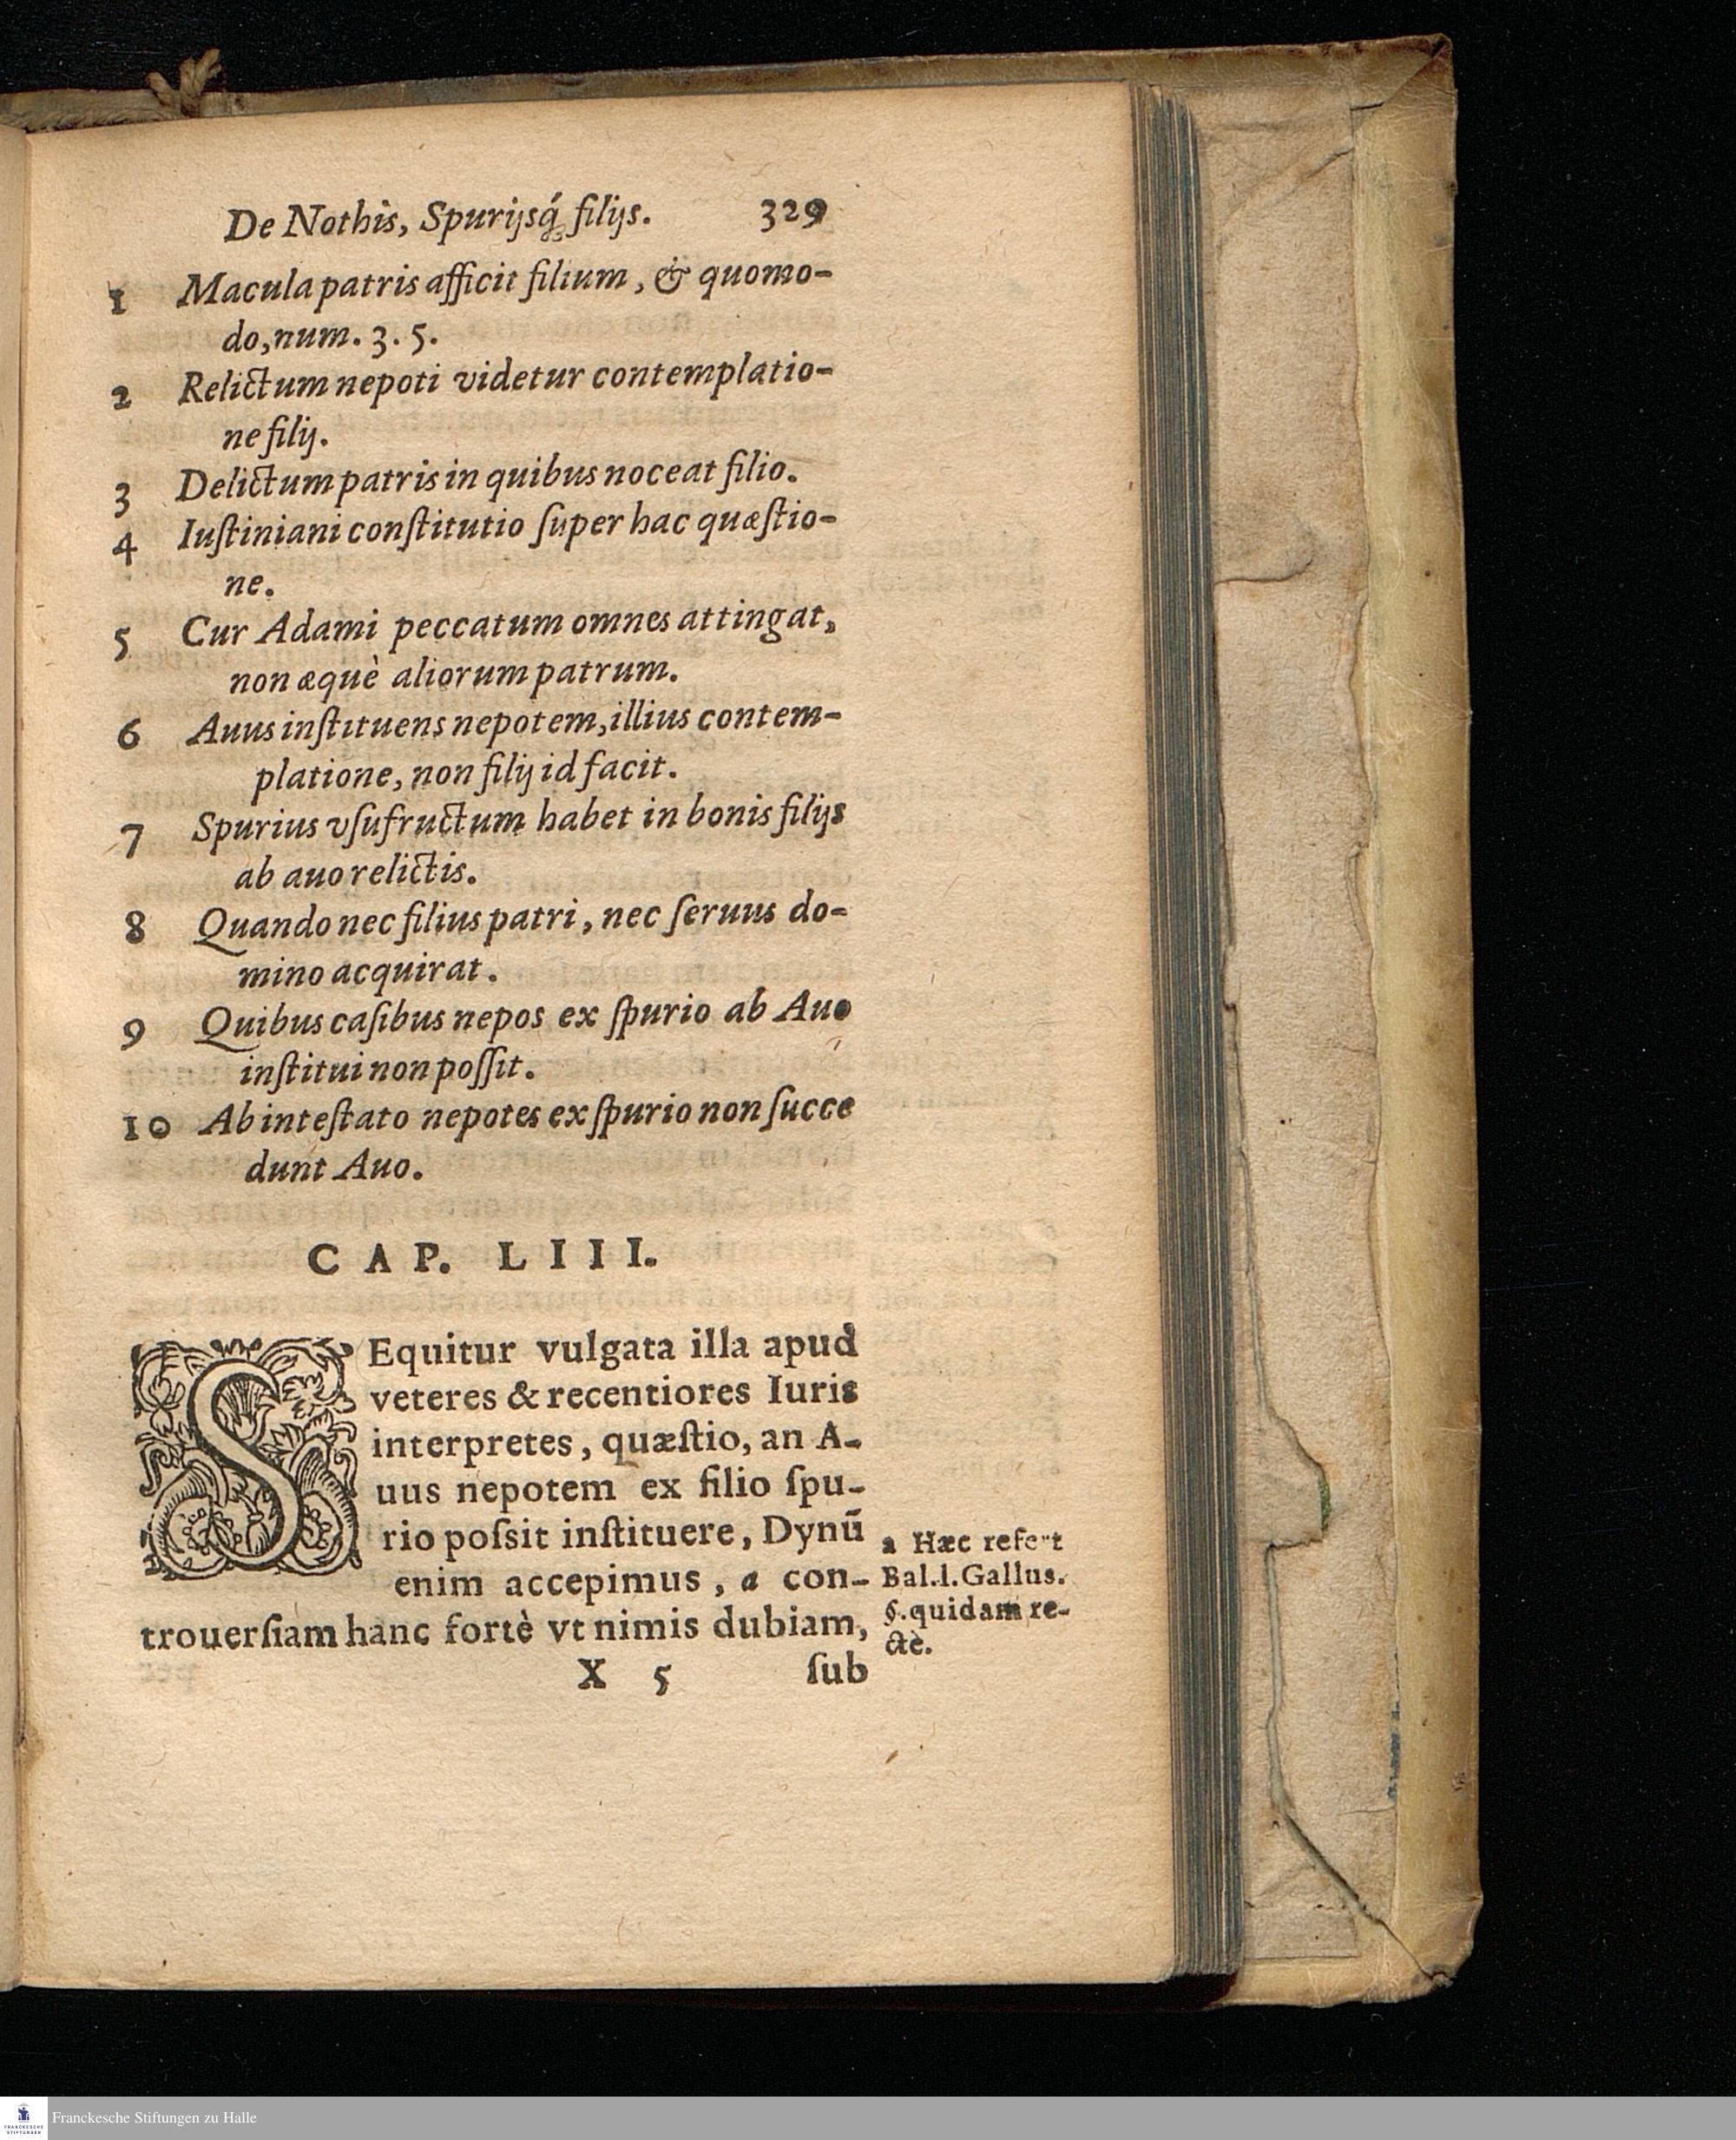 De Nothis, Spurijsq́ꝫ filijs. 329
1 Macula patris afficit filium, & quomo-
do, num. 3. 5.
2 Relictum nepoti videtur contemplatio-
ne filij.
3 Delictum patris in quibus noceat filio.
4 Iuſtiniani conſtitutio ſuper hac quæſtio-
ne.
5 Cur Adami peccatum omnes attingat,
non æquè aliorum patrum.
6 Auus inſtituens nepotem, illius contem-
platione, non filij id facit.
7 Spurius vſufructum habet in bonis filijs
ab auo relictis.
8 Quando nec filius patri, nec ſeruus do-
mino acquirat.
9 Quibus caſibus nepos ex ſpurio ab Auo
inſtitui non poſſit.
10 Ab inteſtato nepotes ex ſpurio non ſucce
dunt Auo.
CAP. LIII.
SEquitur vulgata illa apud
veteres & recentiores Iuris
interpretes, quæſtio, an A-
uus nepotem ex filio ſpu-
rio poſsit inſtituere, Dynū
enim accepimus, a con-
trouerſiam hanc fortè vt nimis dubiam,
a Hæc refert
Bal.l.Gallus.
§.quidam re-
ctè.
X 5 ſub
Franckesche Stiftungen zu Halle
FRANCKESCHE
STIFTUNGEN